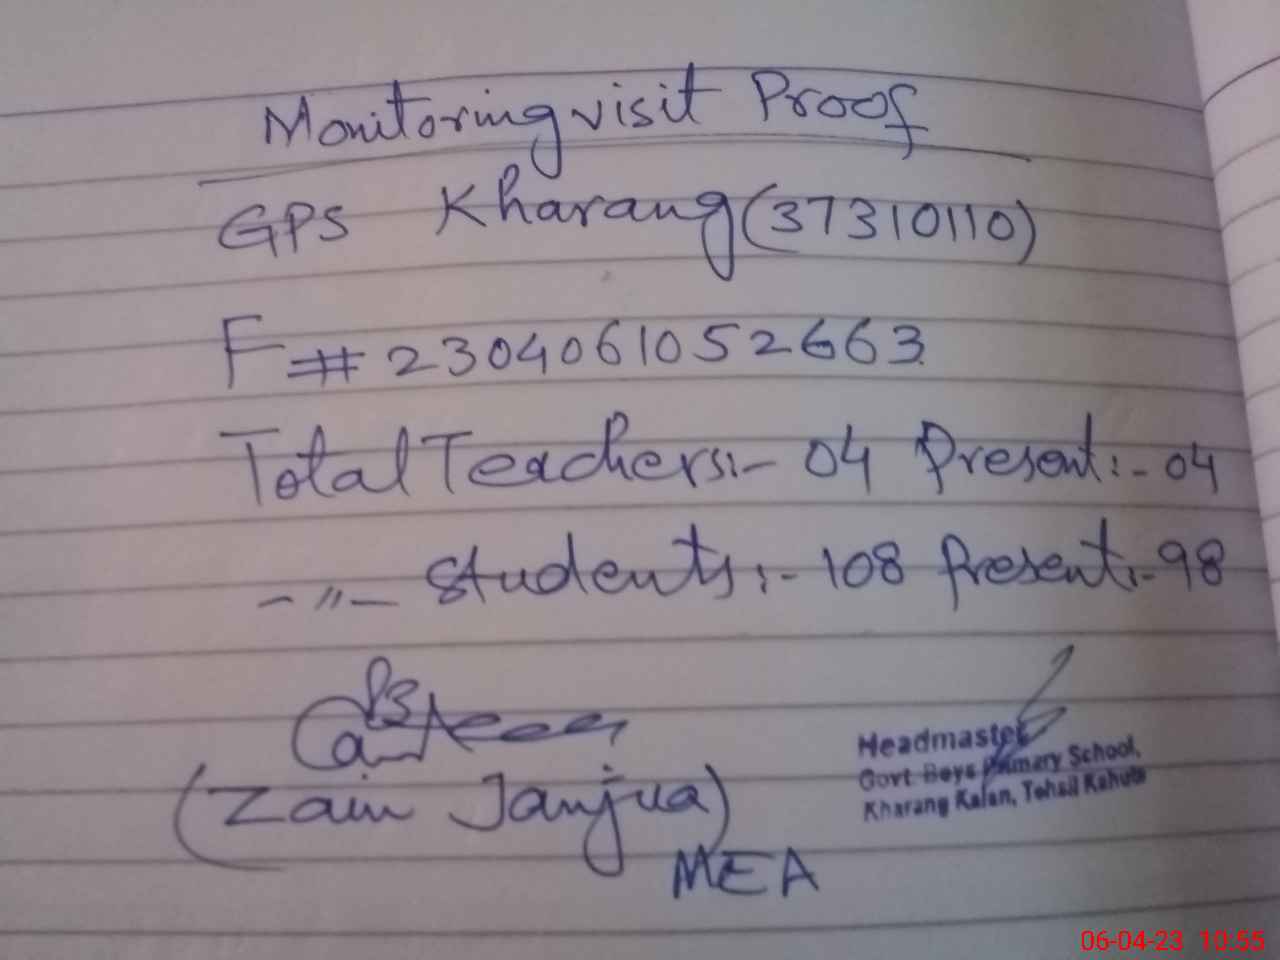 Monitoring visit Proof
GPS Kharang (37310110)
F# 2304061052663
Total Teachers:- 04 Present:- 04
-〃- Students:- 108 Present:- 98
(Zain Janjua)
MEA
Headmaster
Govt. Boys Primary School,
Kharang Kalan, Tehsil Kahuta
06-04-23 10:55